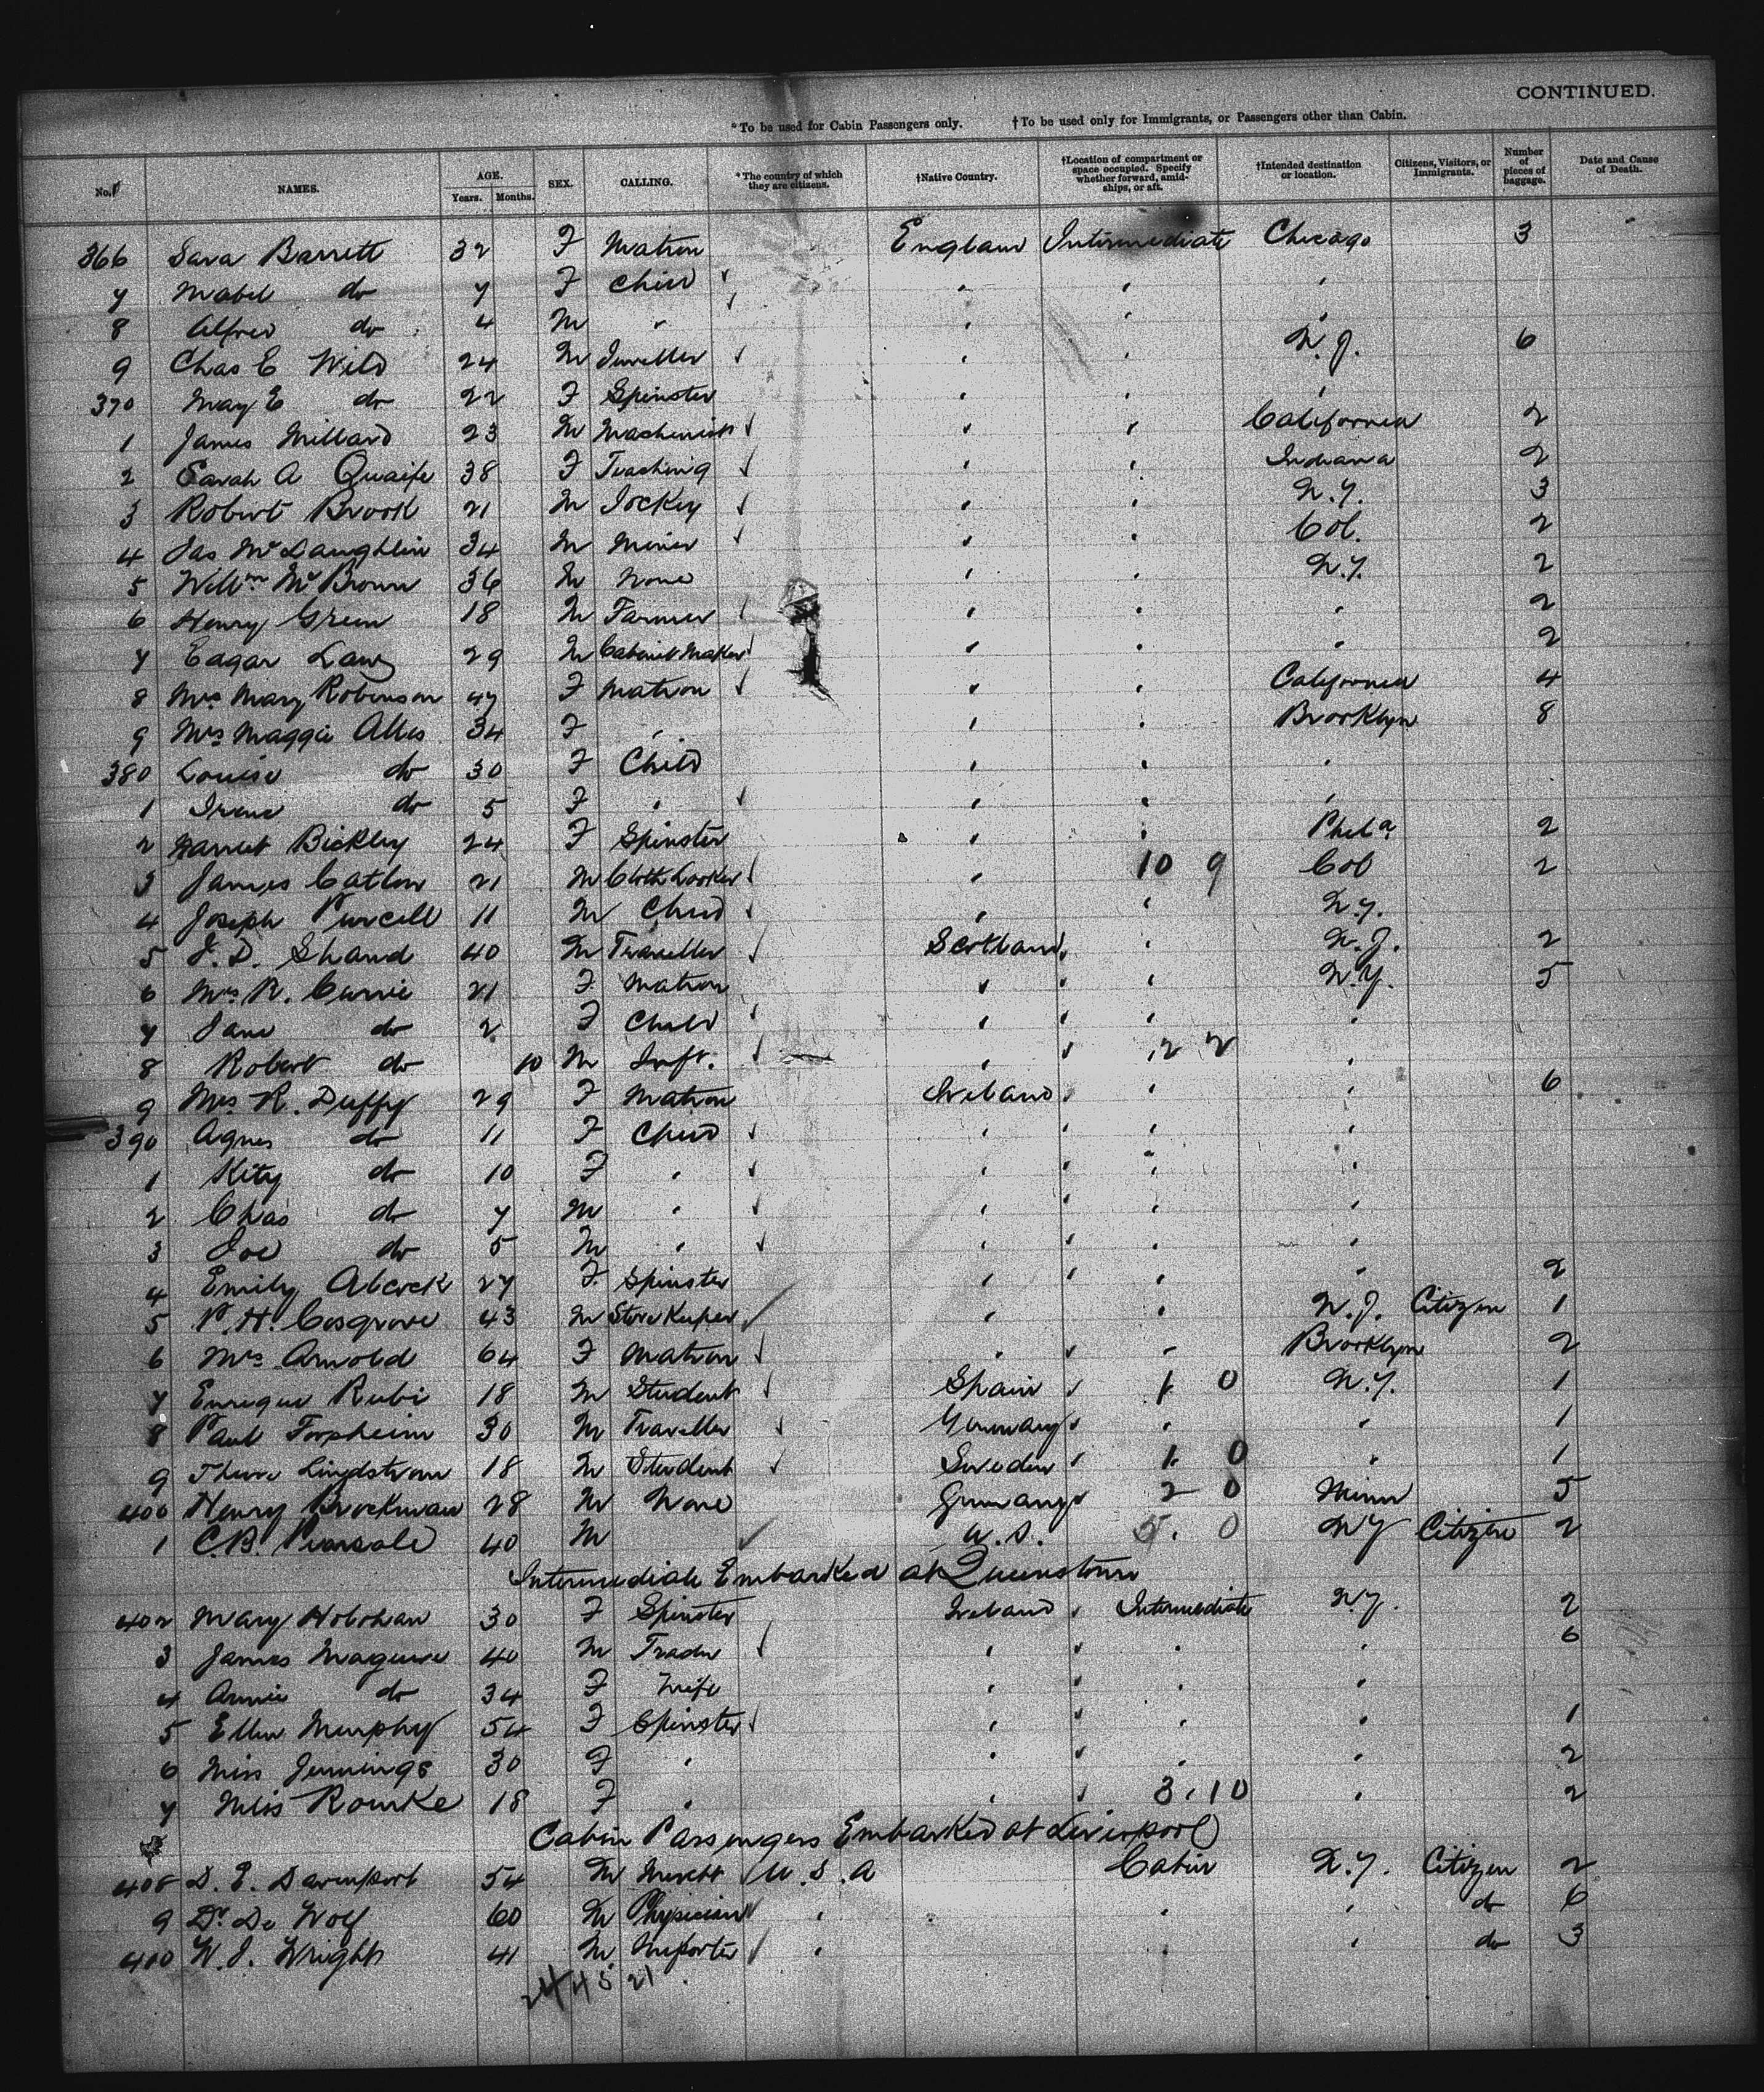 CONTINUED.
*To be used for Cabin Passengers only. †To be used only for Immigrants, or Passengers other than Cabin.
No. NAMES. AGE. Years. Months. SEX. CALLING. *The country of which they are citizens. †Native Country. †Location of compartment or space occupied. Specify whether forward, amidships, or aft. †Intended destination or location. Citizens, Visitors, or Immigrants. Number of pieces of baggage. Date and Cause of Death.
366 Sara Barrett 32 F Matron England Intermediate Chicago 3
7 Mabel do 7 F Child " " "
8 Alfred do 4 M " " " "
9 Chas E Wild 24 M Jeweller " " N.J. 6
370 May E do 22 F Spinster " " "
1 James Millard 23 M Machinist " " California 2
2 Sarah A Quaife 38 F Teaching " " Indiana 2
3 Robert Brook 21 M Jockey " " N.Y. 3
4 Jas McLaughlin 34 M Miner " " Col. 2
5 Willm McBrown 36 M None " " N.Y. 2
6 Henry Green 18 M Farmer " " " 2
7 Edgar Lang 29 M Cabinet Maker " " " 2
8 Mrs Mary Robinson 47 F Matron " " California 4
9 Mrs Maggie 34 F " " " Brooklyn 8
380 Louise do 30 F Child " " "
1 Irene do 5 F " " " "
2 Harriet Bickley 24 F Spinster " " Phila 2
3 James Catlow 21 M Cloth Looker " 10 9 Col 2
4 Joseph Purcell 11 M Child " " N.Y.
5 J. D. Shand 40 M Traveller Scotland " N.J. 2
6 Mrs R. Currie 21 F Matron " " N.Y. 5
7 Jane do 2 F Child " " "
8 Robert do 10 M Inft. " 2 2 "
9 Mrs R. Duffy 29 F Matron Ireland " " 6
390 Agnes do 11 F Child " " "
1 Kity do 10 F " " " "
2 Chas do 7 M " " " "
3 Joe do 5 M " " " "
4 Emily Alcock 27 F Spinster " " " 2
5 P. H. Cosgrove 43 M Store Keeper " " N.J. Citizen 1
6 Mrs Arnold 64 F Matron " " Brooklyn 2
7 Enrique Rubi 18 M Student Spain 1 0 N.Y. 1
8 Paul Forpheim 30 M Traveller Germany " " 1
9 Thure Lindstrom 18 M Student Sweden 1 0 " 1
400 Henry Brockman 28 M None Germany 2 0 Minn 5
1 C. B. Pearsale 40 M U.S. 5. 0 NY Citizen 2
Intermediate Embarked at Queenstown
402 Mary Holohan 30 F Spinster Ireland Intermediate N.Y. 2
3 James Maguire 40 M Trader " " " 6
4 Annie do 34 F Wife " " "
5 Ellen Murphy 54 F Spinster " " " 1
6 Miss Jennings 30 F " " " " 2
7 Miss Rourke 18 F " " 3. 10 " 2
Cabin Passengers Embarked at Liverpool
408 D. E. Davenport 54 M Mercht U.S.A Cabin N.Y. Citizen 2
9 Dr De Wolf 60 M Physician " " " do 6
410 W. J. Wright 41 M Importer " " " do 3
24 4 5 21